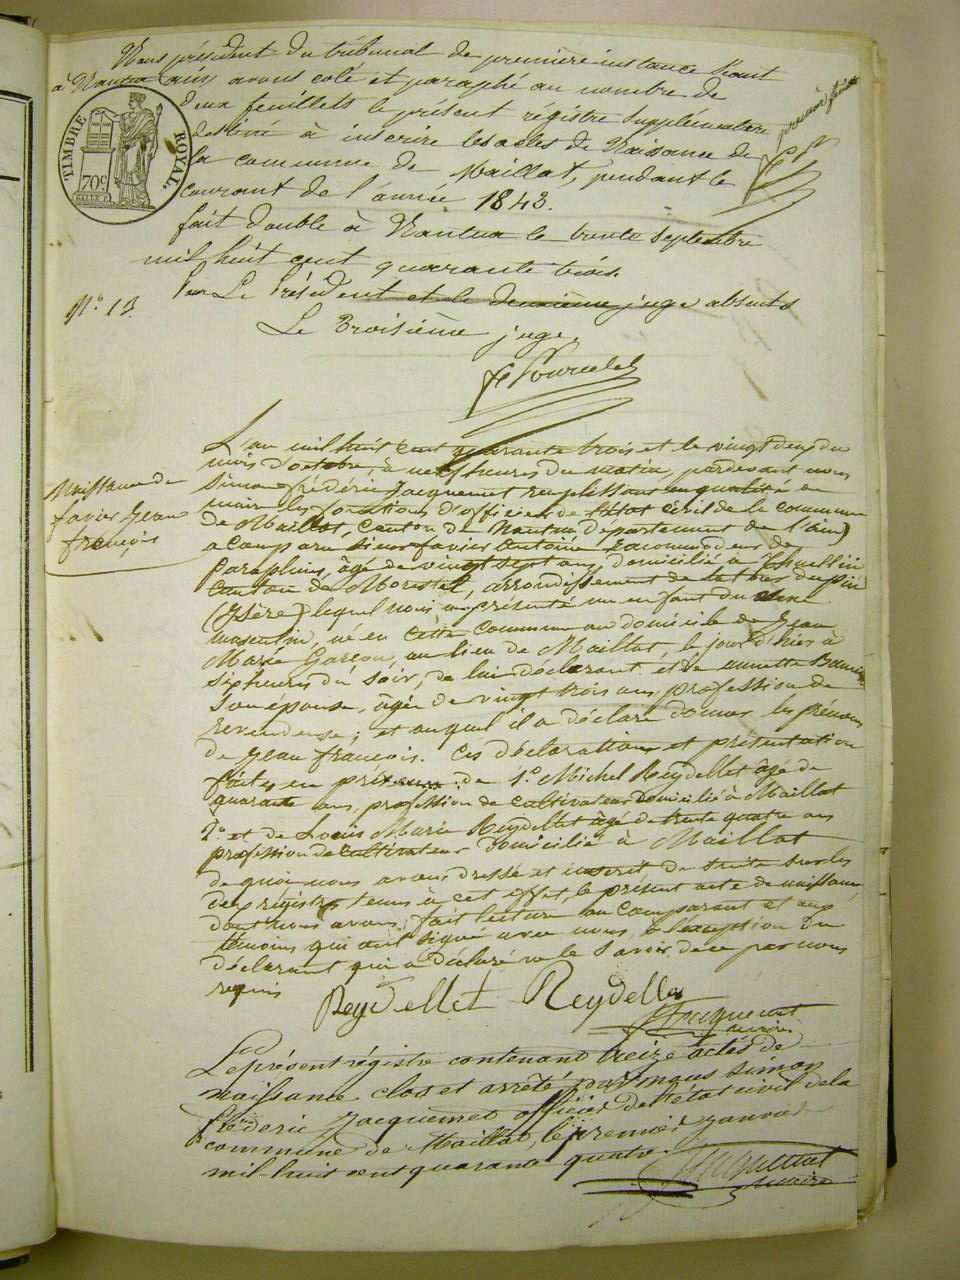 Nous président du tribunal de première instance séant
à Nantua (ain) avons coté et paraphé au nombre de
deux feuillets le présent régistre supplémentaire
destiné à inscrire les actes de Naissance de
la commune de Maillat, pendant le
courant de l'année 1843.
fait double à Nantua le trente septembre
mil huit cent quarante trois.
premier feuillet
TIMBRE ROYAL
70c
Pour Le Président et le deuxième juge absents
Le Troisième juge,
N.° 13.
Naissance de
favier Jean
françois
L'an mil huit cent quarante trois et le vingt deux du
mois d'octobre, à neuf heures du matin, pardevant nous
Simon frédéric Jacquemet remplissant en qualité de
maire les fonctions d'officier de l'état civil de la commune
de Maillat, canton de Nantua (Département de l'ain)
a comparu sieur favier Antoine raccommodeur de
Parapluies, âgé de vingt sept ans, domicilié à
canton de Morestel, arrondissement de la tour du pin
(Isère) lequel nous a présenté un enfant du sexe
masculin, né en cette commune au domicile de Jean
Marie Garçon, au lieu de Maillat, le jour d'hier à
six heures du soir, de lui déclarant et de annette
son épouse, âgée de vingt trois ans, profession de
revendeuse; et auquel il a déclaré donner les prénoms
de Jean françois. Ces déclarations et présentation
faites en présence: de 1.° Michel Reydellet âgé de
quarante ans, profession de cultivateur domicilié à Maillat
2.° et de Louis Marie Reydellet âgé de trente quatre ans
profession de cultivateur domicilié à Maillat
de quoi nous avons dressé et inscrit de suite sur les
deux régistres tenus à cet effet, le présent acte de naissance,
dont nous avons fait lecture au comparant et aux
témoins qui ont signé avec nous, à l'exception du
déclarant qui a déclaré ne le savoir de ce par nous
requis
Reydellet Reydellet
Jacquemet
maire
Le présent régistre contenant treize actes de
naissance clos et arrêté par nous Simon
frédéric Jacquemet officier de l'état civil de la
commune de Maillat, le premier janvier
mil huit cent quarante quatre.
Jacquemet
maire